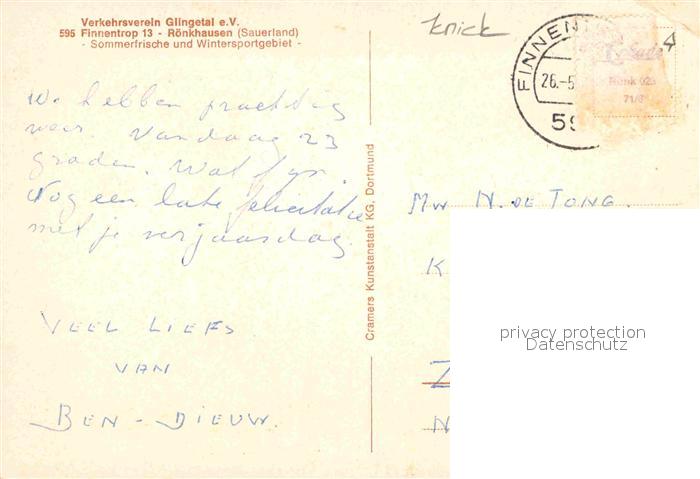 Verkehrsverein Glingetal e.V.
595 Finnentrop 13 - Rönkhausen (Sauerland)
- Sommerfrische und Wintersportgebiet -
knick
FINNEN
26.-5
59
Rönk 025
71/6
We hebben prachtig
weer. Vandaag 23
graden. Wat fijn.
Nog een late felicitatie
met je verjaardag.
VEEL LIEFS
VAN
BEN - DIEUW.
Cramers Kunstanstalt KG, Dortmund
MW N. DE JONG.
K
Z
N
privacy protection
Datenschutz